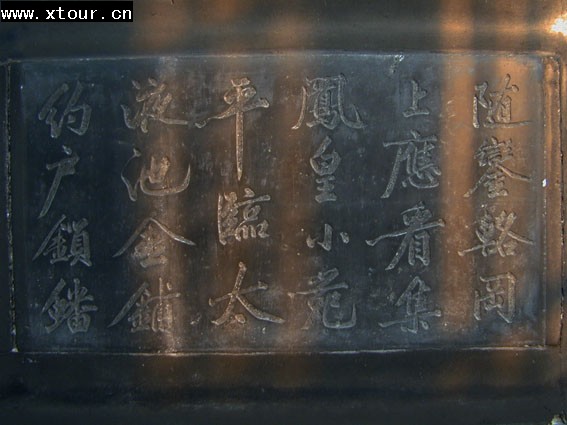 www.xtour.cn
随鑾輅岡
上應看集
鳳皇小苑
平臨太
液池金鋪
約户鎖蟠